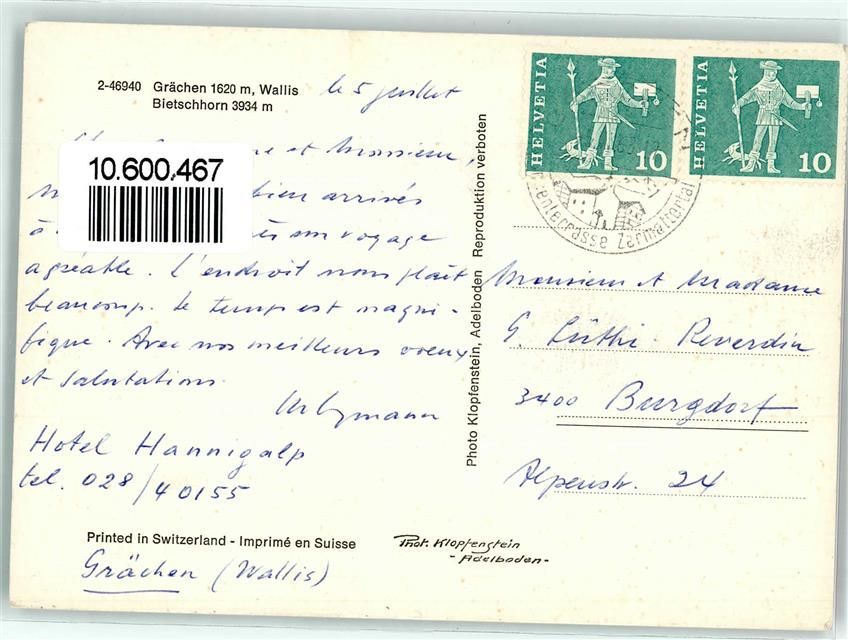 2-46940 Grächen 1620 m, Wallis
Bietschhorn 3934 m
le 5 juillet
et Monsieur,
10.600.467
bien arrivés
à voyage
agréable. L'endroit nous plaît
beaucoup. Le temps est magni-
fique. Avec nos meilleurs voeux
et salutations.
Hotel Hannigalp
tel. 028/40155
Printed in Switzerland - Imprimé en Suisse
Grächen (Wallis)
Phot. Klopfenstein
- Adelboden -
Photo Klopfenstein, Adelboden Reproduktion verboten
HELVETIA
10
HELVETIA
10
Zermattertal
Monsieur et Madame
G. Lüthi-Reverdin
3400 Burgdorf
Alpenstr. 24